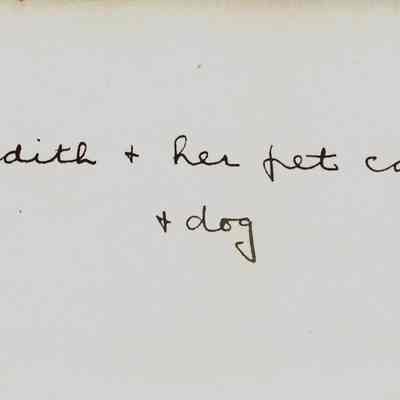 dith + her pet
+ dog